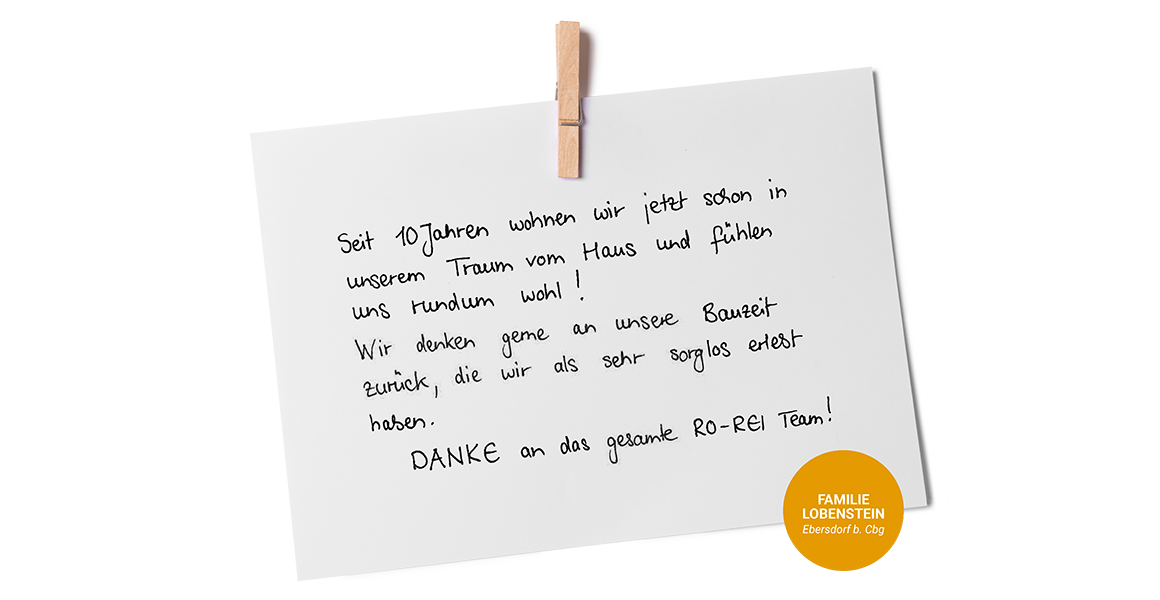 Seit 10 Jahren wohnen wir jetzt schon in
unserem Traum vom Haus und fühlen
uns rundum wohl!
Wir denken gerne an unsere Bauzeit
zurück, die wir als sehr sorglos erlebt
haben.
DANKE an das gesamte RO-REI Team!
FAMILIE
LOBENSTEIN
Ebersdorf b. Cbg